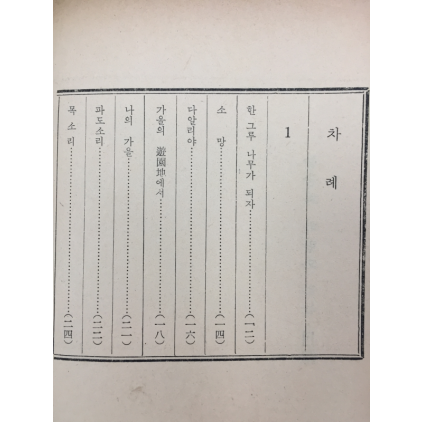 차례
1
한 그루 나무가 되자……………(一二)
소망……………(一四)
다알리야……………(一六)
가을의 遊園地에서……………(一八)
나의 가을……………(二一)
파도소리……………(二二)
목소리……………(二四)